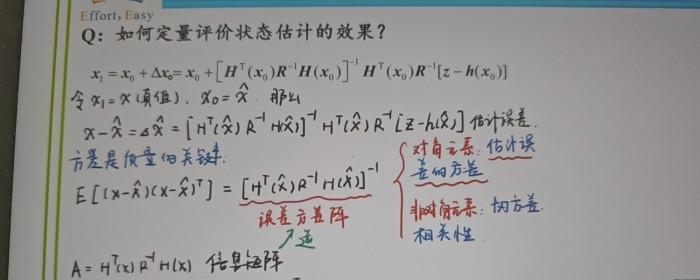 Effort, Easy
Q：如何定量评价状态估计的效果？
x₁ = x₀ + Δx₀ = x₀ + [Hᵀ(x₀)R⁻¹H(x₀)]⁻¹ Hᵀ(x₀)R⁻¹[z − h(x₀)]
令 x₁ = x (真值)，x₀ = x̂. 那么
x − x̂ = Δx̂ = [Hᵀ(x̂) R⁻¹ H(x̂)]⁻¹ Hᵀ(x̂) R⁻¹ [z − h(x̂)] 估计误差.
方差是质量的关键:
E[(x−x̂)(x−x̂)ᵀ] = [Hᵀ(x̂) R⁻¹ H(x̂)]⁻¹
误差方差阵
逆
对角元素: 估计误
差的方差
非对角元素: 协方差.
相关性.
A = Hᵀ(x) R⁻¹ H(x) 信息矩阵